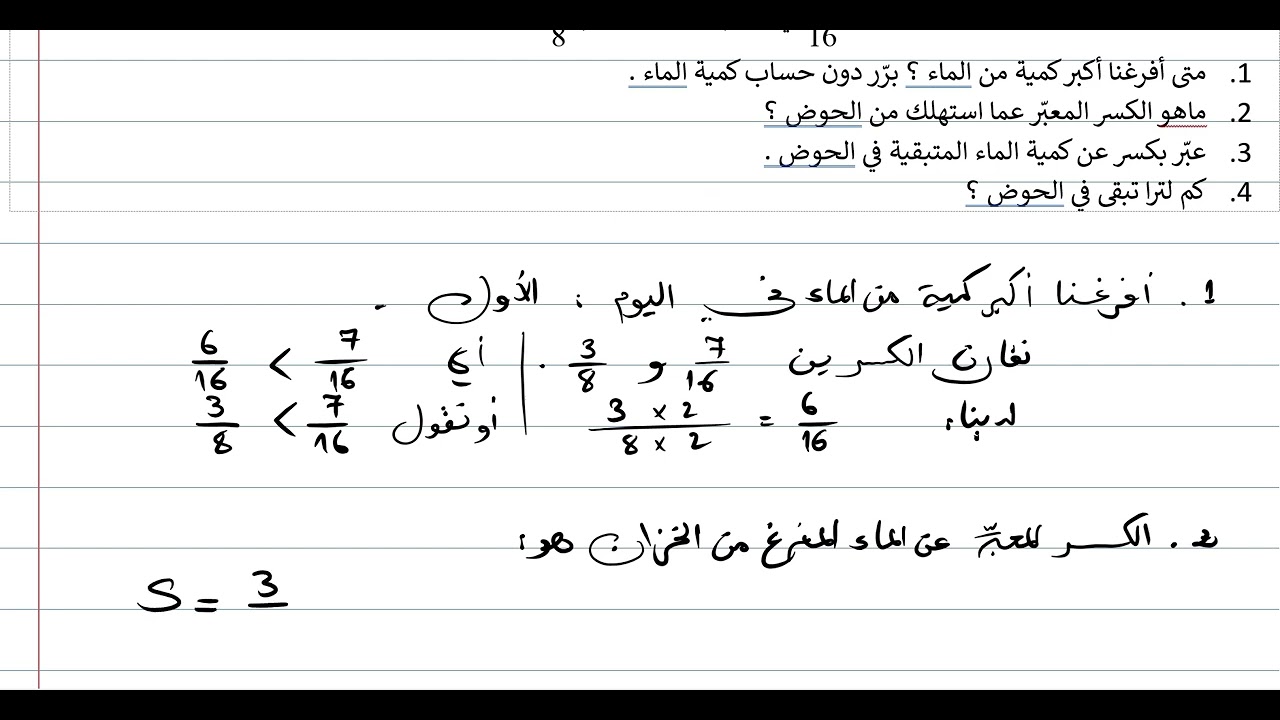 8 16
1. متى أفرغنا أكبر كمية من الماء ؟ برّر دون حساب كمية الماء .
2. ماهو الكسر المعبّر عما استهلك من الحوض ؟
3. عبّر بكسر عن كمية الماء المتبقية في الحوض .
4. كم لترا تبقى في الحوض ؟
1 . أفرغنا أكبر كمية من الماء في اليوم : الأول .
نقارن الكسرين 7/16 و 3/8 . | أي 6/16 < 7/16
لدينا : 3 × 2 / 8 × 2 = 6/16 | أو نقول 3/8 < 7/16
2 . الكسر المعبّر عن الماء المفرغ من الخزان هو :
S = 3